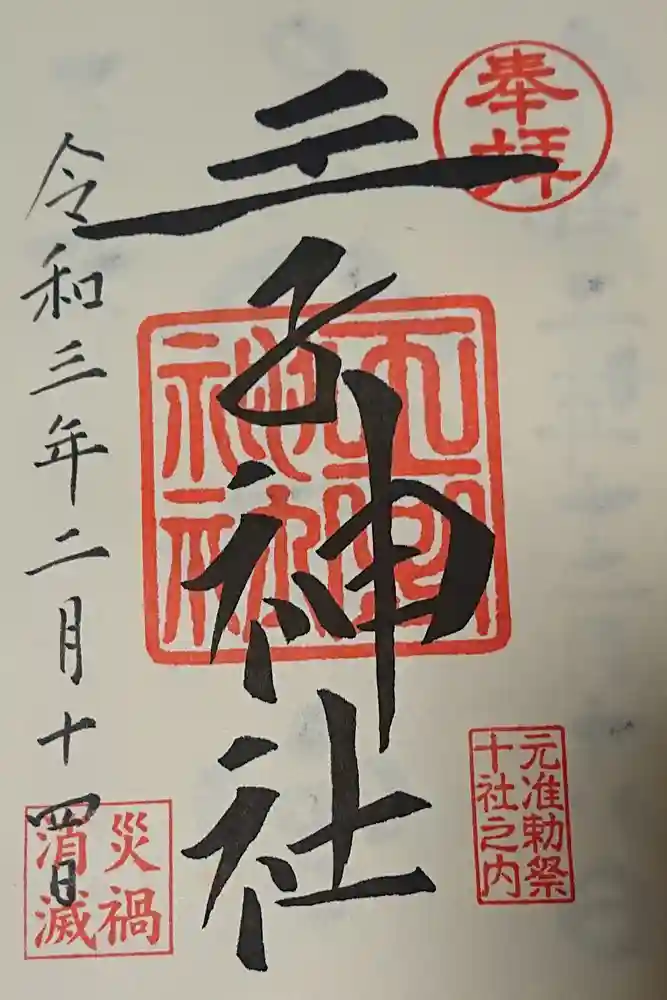 奉拝
元准勅祭
十社之内
王子神社
令和三年二月十四日
災禍
消滅